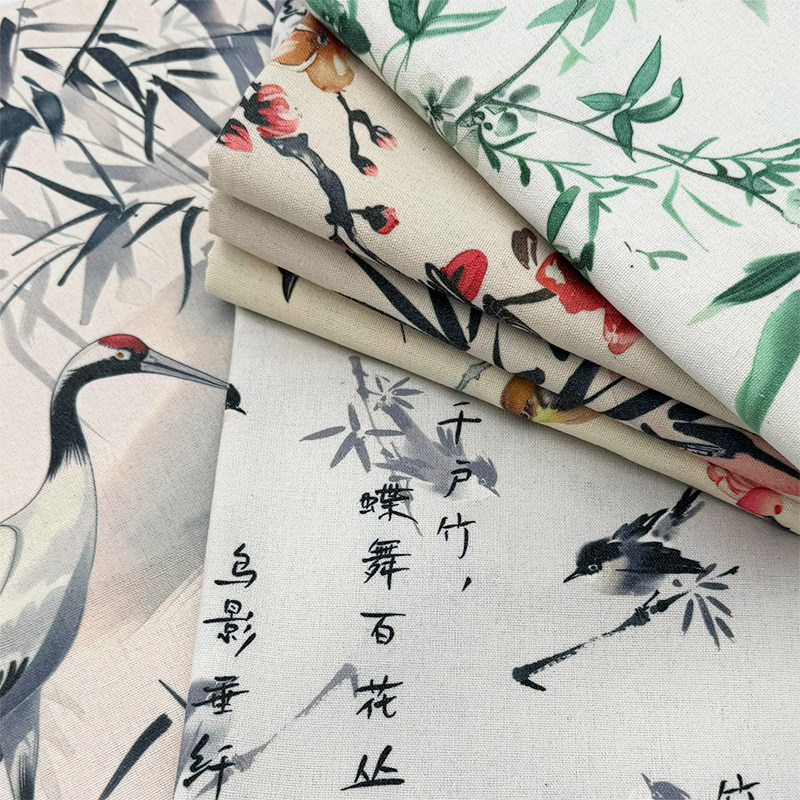 竹
千户竹，
蝶舞百花丛
鸟影垂纤